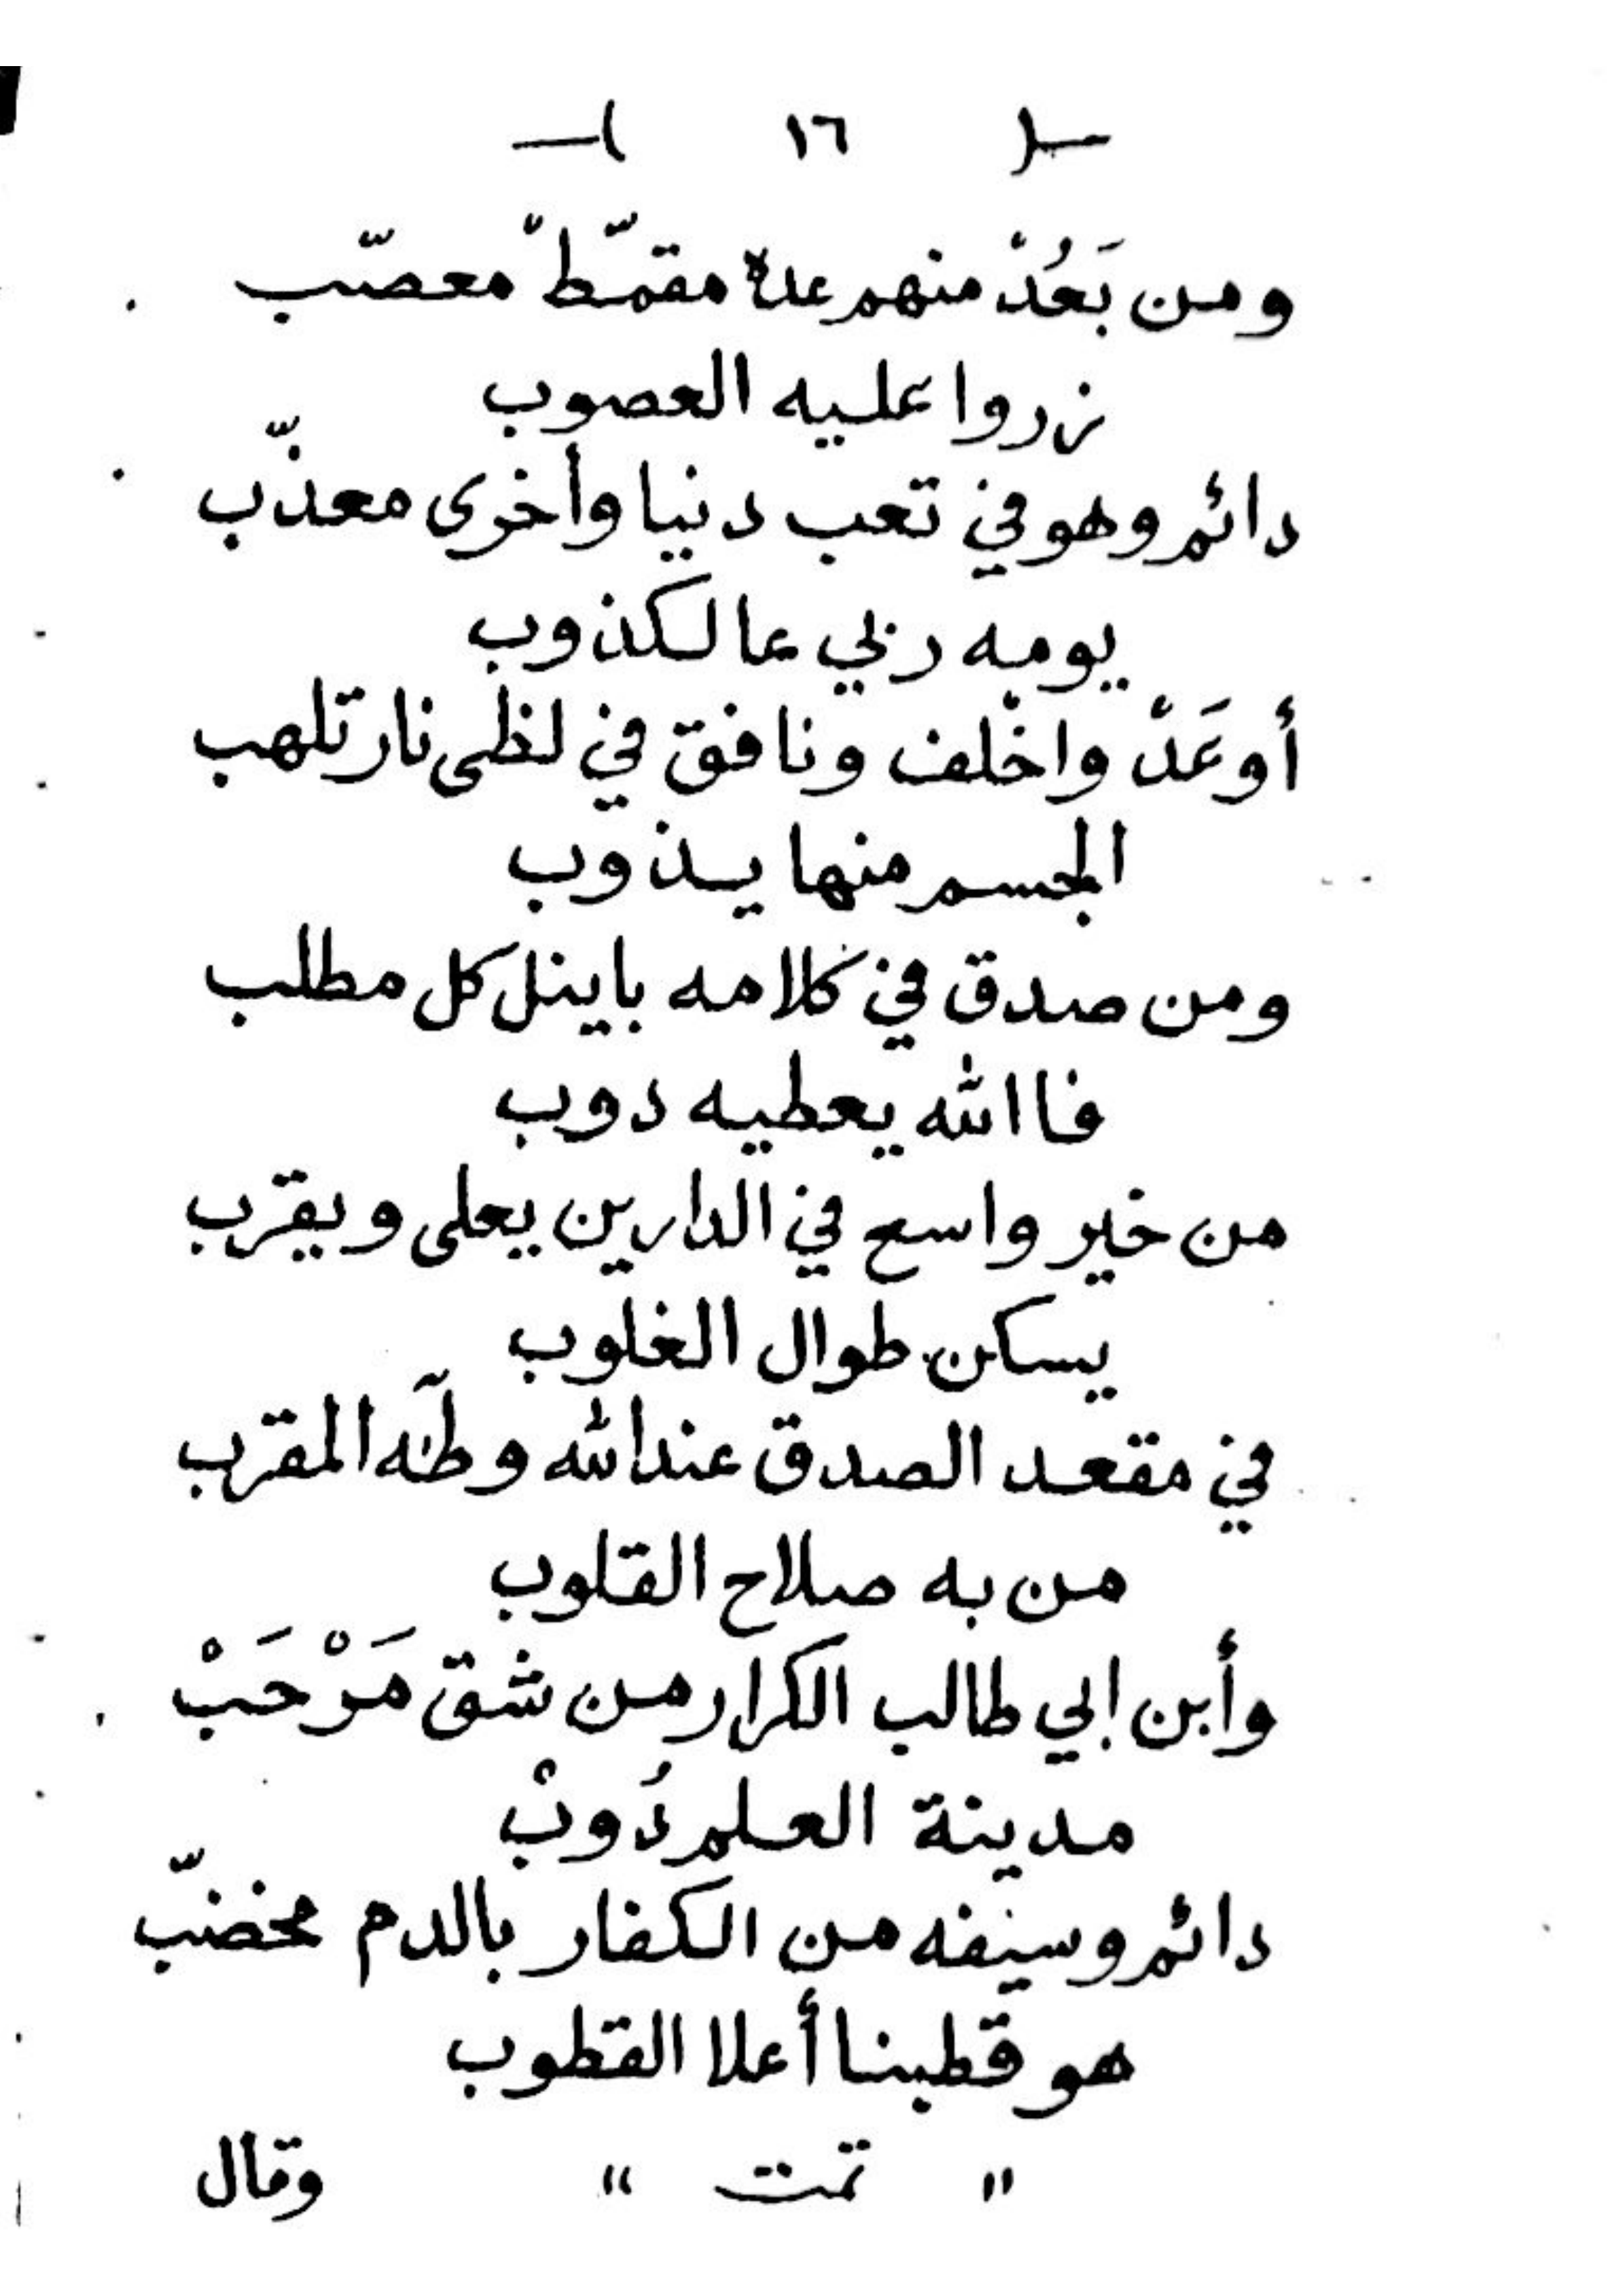 -( ١٦ )-
ومن بَعُدْ منهم عدة مقمّطْ معصّب
زروا عليه العصوب
دائم وهو في تعب دنيا وأخرى معذّب
يومه ربي عالكذوب
أوعَدْ واخْلف ونافق في لظى نار تلهب
الجسم منها يذوب
ومن صدق في كلامه باينل كل مطلب
فاالله يعطيه دوب
من خير واسع في الدارين يعلى ويقرّب
يسكن طوال الغلوب
في مقعد الصدق عند الله وطٓه المقرّب
من به صلاح القلوب
وأبن إبي طالب الكرار من شق مَرْحَبْ
مدينة العلم دُوبْ
دائم وسيفه من الكفار بالدم مخضّب
هو قطبنا أعلا القطوب
" تمت "
وقال